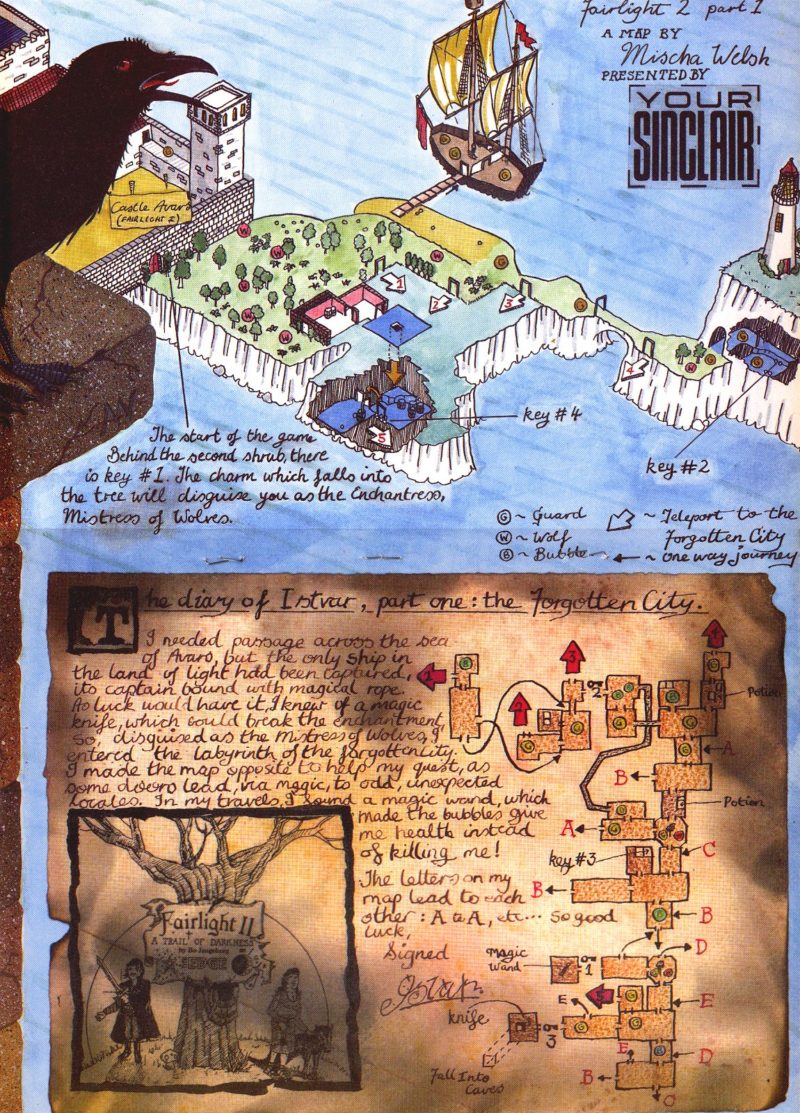 Fairlight 2 part 1
A MAP BY
Mischa Welsh
PRESENTED BY
YOUR
SINCLAIR
Castle Avars
(FAIRLIGHT I)
W
W
W
W
W
W
W
G
G
G
1
2
3
4
5
key #4
key #2
The start of the game
Behind the second shrub, there
is key #1. The charm which falls into
the tree will disguise you as the Enchantress,
Mistress of Wolves.
G ~ Guard
W ~ Wolf
B ~ Bubble
~ Teleport to the
Forgotten City
~ one way journey
The diary of Istvar, part one: the Forgotten City.
I needed passage across the sea
of Avaro, but the only ship in
the land of light had been captured,
its captain bound with magical rope.
As luck would have it, I knew of a magic
knife, which could break the enchantment,
So, disguised as the Mistress of Wolves, I
entered the labyrinth of the forgotten city.
I made the map opposite to help my quest, as
some doors lead, via magic, to odd, unexpected
locales. In my travels, I found a magic wand, which
made the bubbles give
me health instead
of killing me!
The letters on my
map lead to each
other: A to A, etc... So good
luck,
Signed
Istvar
1
2
3
4
2
Potion
A
B
Potion
A
C
key #3
B
B
D
Magic
Wand
1
E
5
E
knife
3
E
D
B
C
Fall Into
Caves
Fairlight II
A TRAIL OF DARKNESS
by Bo Jangeborg
THE EDGE